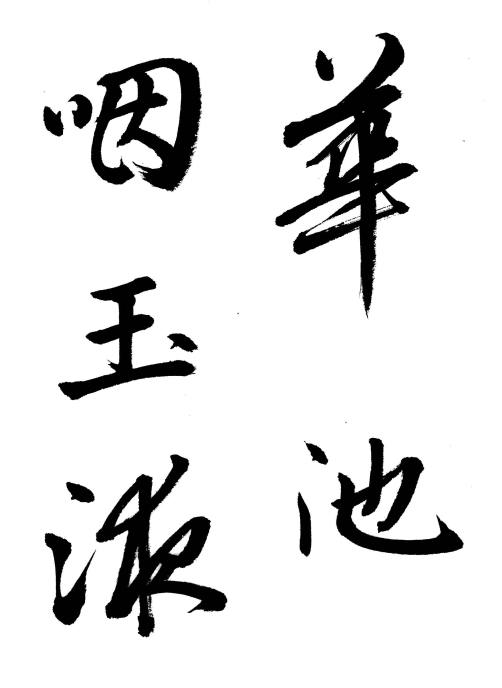 華池
咽玉液